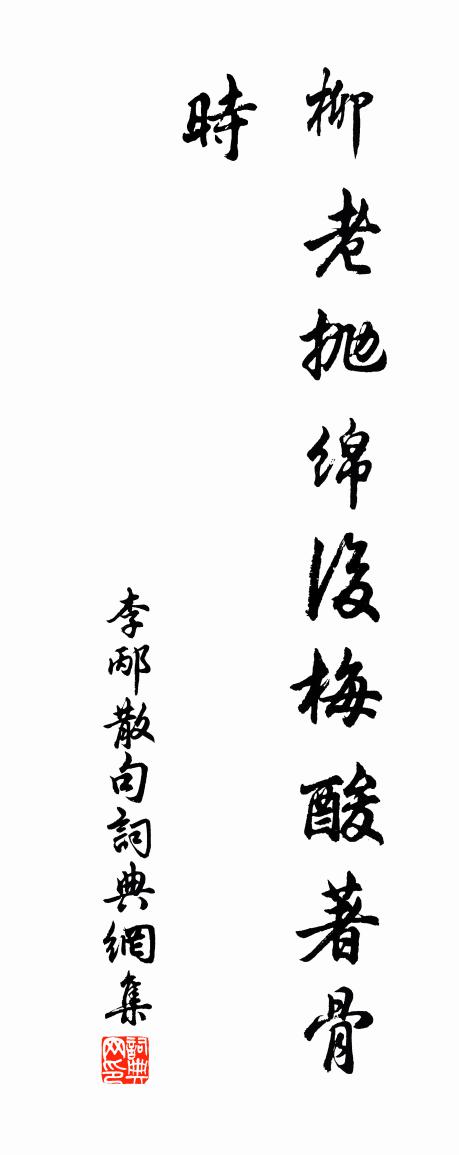 柳老抛绵後梅酸著骨
時
李邴散句詞典網集
詞典網印